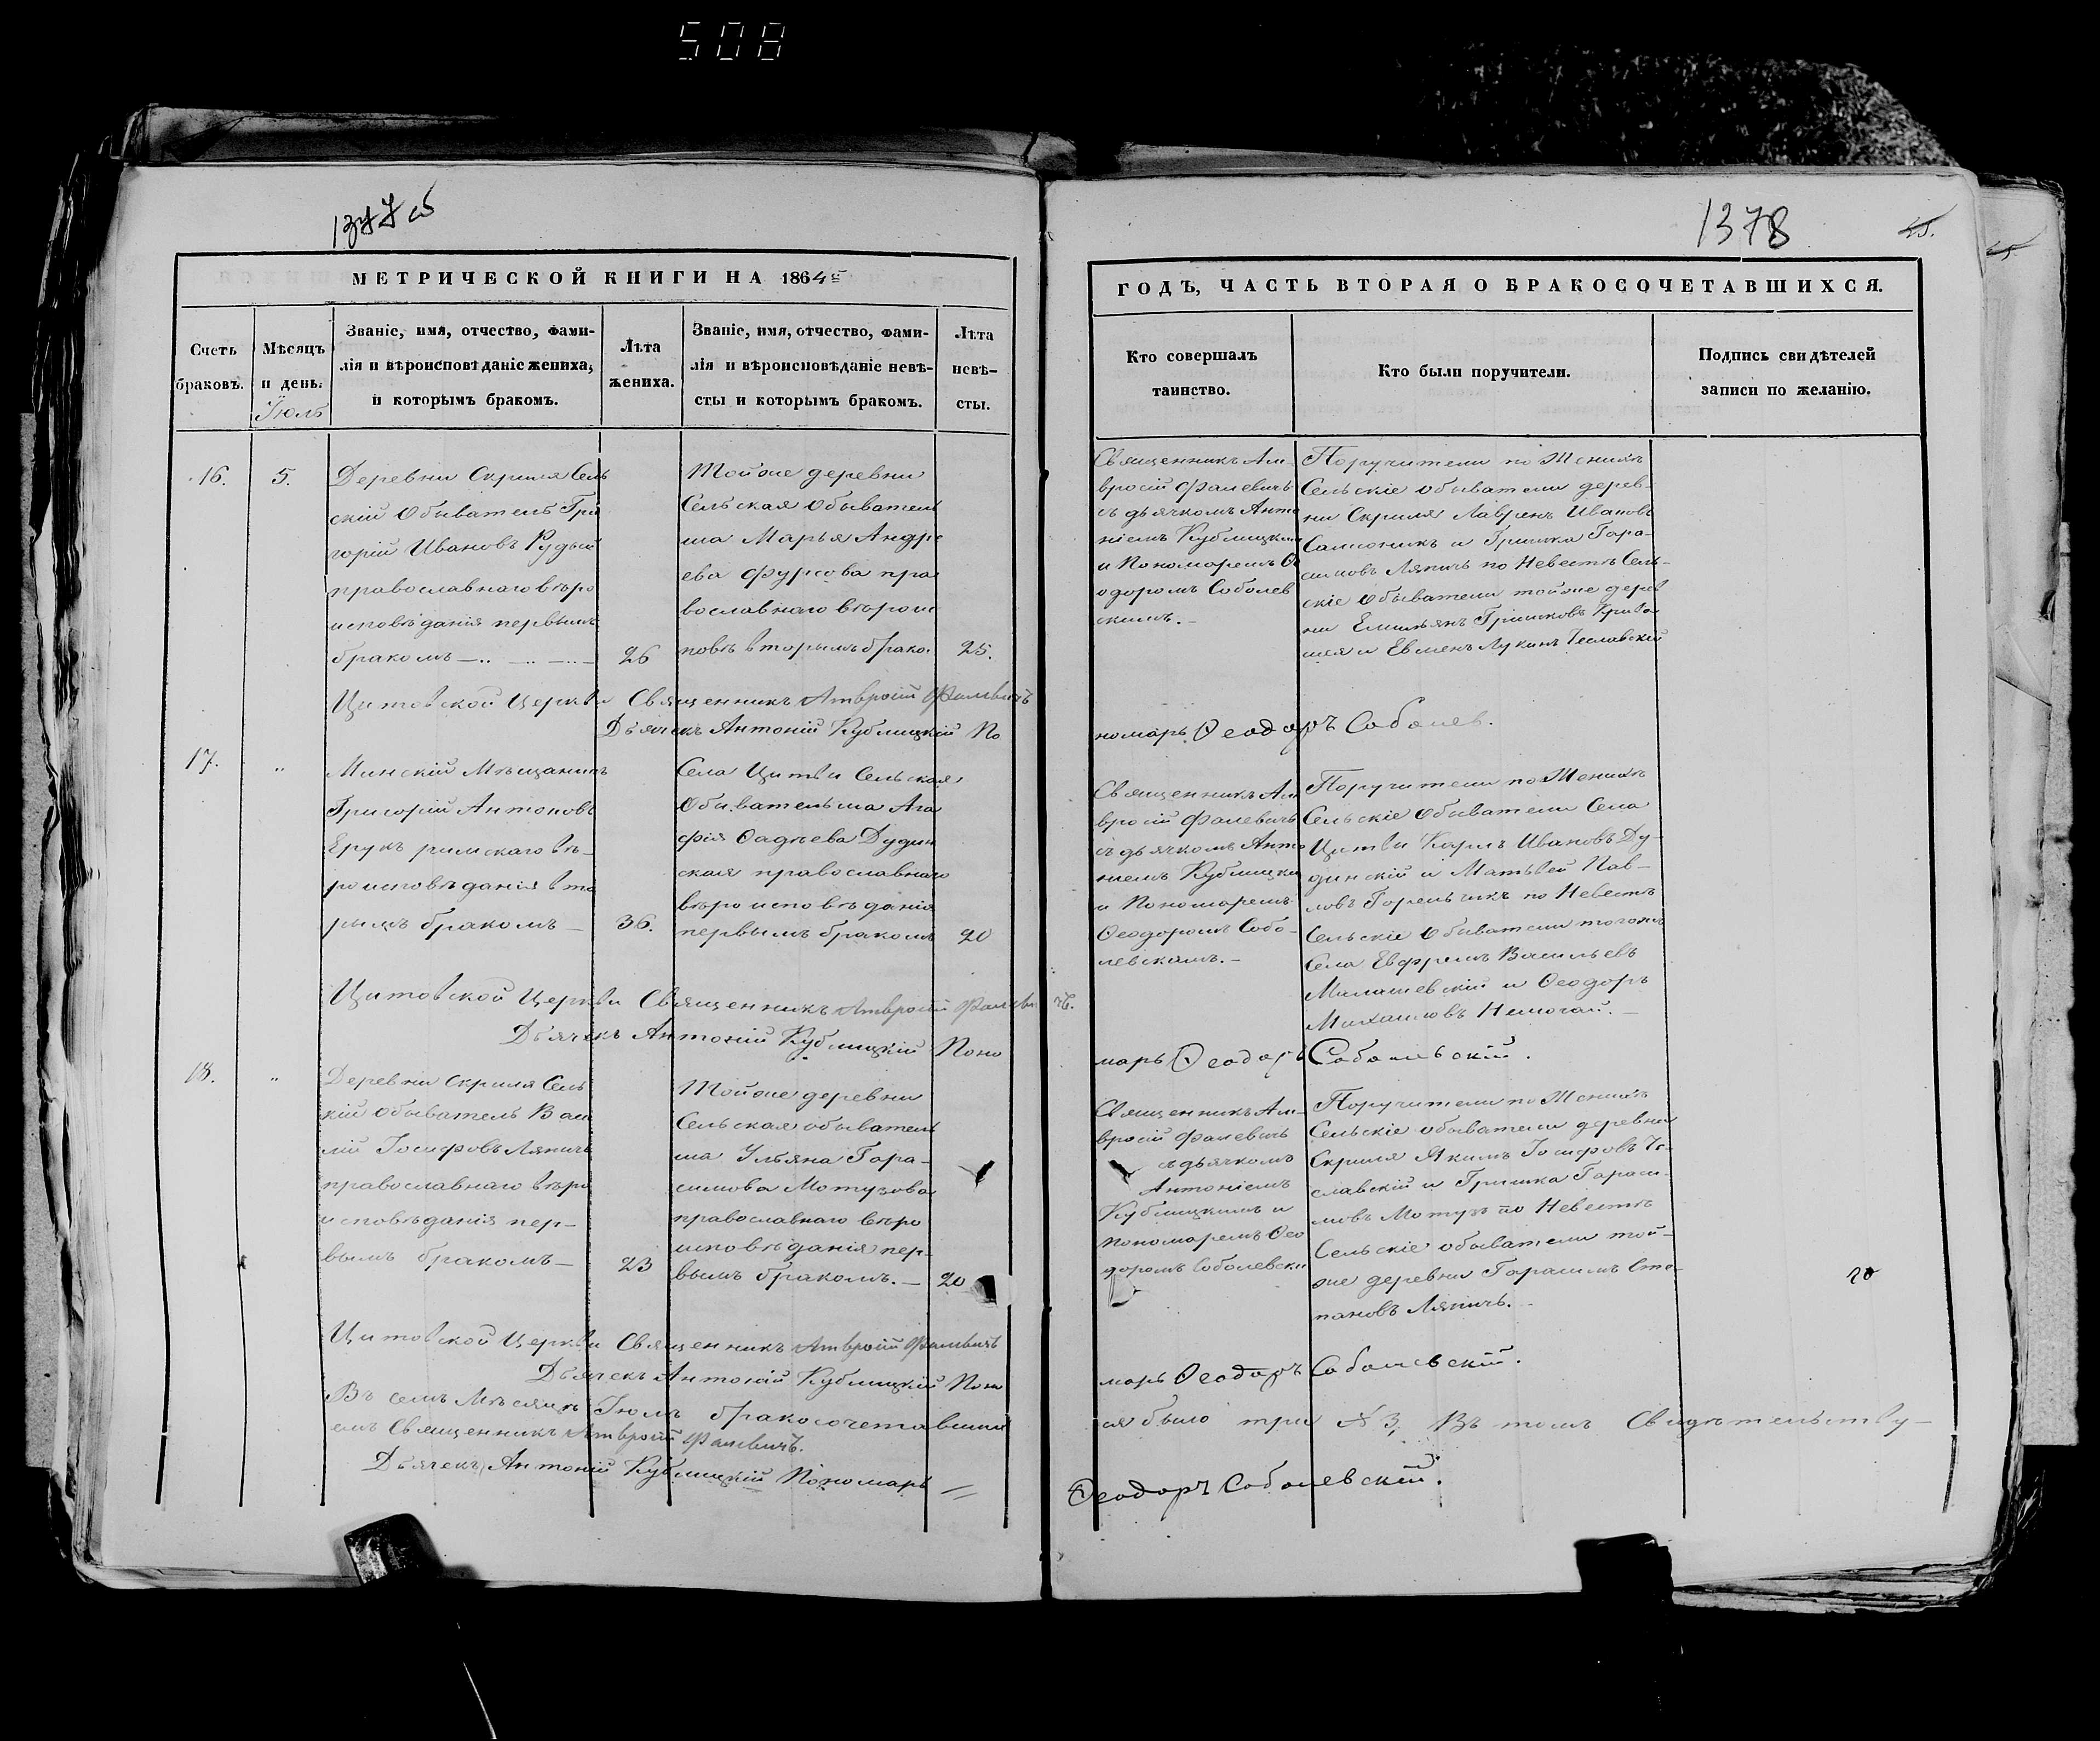 508
1377 об
1378
МЕТРИЧЕСКОЙ КНИГИ НА 1864й
ГОДЪ, ЧАСТЬ ВТОРАЯ О БРАКОСОЧЕТАВШИХСЯ.
Счетъ
браковъ.
Мѣсяцъ
и день.
Іюль
Званіе, имя, отчество, фами-
лія и вѣроисповѣданіе жениха,
и которымъ бракомъ.
Лѣта
жениха.
Званіе, имя, отчество, фами-
лія и вѣроисповѣданіе невѣ-
сты и которымъ бракомъ.
Лѣта
невѣ-
сты.
Кто совершалъ
таинство.
Кто были поручители.
Подпись свидѣтелей
записи по желанію.
16.
5.
Деревни Скриля Сель
скій Обыватель Гри
горій Ивановъ Рудый
православнаго вѣро
исповѣданія первымъ
бракомъ
26
Тойже деревни
Сельская Обыватель
ша Марья Андре
ева Фурсова пра
вославнаго вѣроис
повѣ вторымъ брако.
25.
Священникъ Ам-
вросій Фалевичъ
съ дьячкомъ Анто
ніемъ Кублицким
и Пономаремъ Ѳе
одоромъ Соболев
скимъ.-
Поручители по Женихѣ
Сельскіе Обыватели дерев-
ни Скриля Лавренъ Ивановъ
и Гришка Гара-
симовъ Ляпичъ по Невестѣ Сель-
скіе Обыватели тойже дерев
ни Емильянъ Гришковъ
и Евменъ Лукинъ
Цитовской Церкви Священникъ Амвросій Фалевичъ
Дьячекъ Антоній Кублицкій По
номарь Ѳеодоръ Соболев.
17.
"
Минскій Мѣщанинъ
Григорій Антоновъ
Ерукъ римскаго вѣ-
роисповѣданія вто
рымъ бракомъ —
36.
Села Цитви Сельская
Обывательша Ага
фія Ѳадѣева Дудин
ская православнаго
вѣроисповѣданія
первымъ бракомъ
20
Священникъ Ам
вросій Фалевичъ
съ дьячкомъ Анто
ніемъ Кублицки
и Пономаремъ
Ѳеодоромъ Собо-
левскимъ.-
Поручители по Женихѣ
Сельскіе Обыватели Села
Цитви Карлъ Ивановъ Ду-
динскій и Матвей Пав-
ловъ Горельчикъ по Невестѣ
Сельскіе Обыватели тогожъ
Села Евфремъ Васильевъ
Милашевскій и Ѳеодоръ
Михаиловъ Немогай. —
Цитовской Церкви Священникъ Амвросій Фалевичъ.
Дьячекъ Антоній Кублицкій Поно
марь Ѳеодоръ Собольскій.
18.
"
Деревни Скриля Сель
кій обыватель Васи
лій Іосифовъ Ляпичъ
православнаго вѣро
исповѣданія пер-
вымъ бракомъ —
23
Тойже деревни
Сельская обыватель
ша Ульяна Гора-
симова Мотузова
православнаго вѣро
исповѣданія пер-
вымъ бракомъ. —
20
Священникъ Ам-
вросій Фалевичъ
съ дьячкомъ
Антоніемъ
Кублицкимъ и
пономаремъ Ѳео
доромъ Соболевски
Поручители по Женихѣ
Сельскіе обыватели деревни
Скриля Якимъ Іосифовъ Че-
славскій и Гришка Гораси-
мовъ Мотузъ по Невестѣ
Сельскіе обыватели той-
же деревни Гарасимъ Сте-
пановъ Ляпичъ. -
Цитовской Церкви Священникъ Амвросій Фалевичъ
Дьячекъ Антоній Кублицкій Поно
марь Ѳеодоръ Соболевскій.
Въ семъ Мѣсяцѣ Іюлѣ бракосочетавших
ся было три № 3, Въ томъ Свидѣтельству-
емъ Священникъ Амвросій Фалевичъ.
Дьячекъ Антоній Кублицкій Пономарь
Ѳеодоръ Соболевскій.